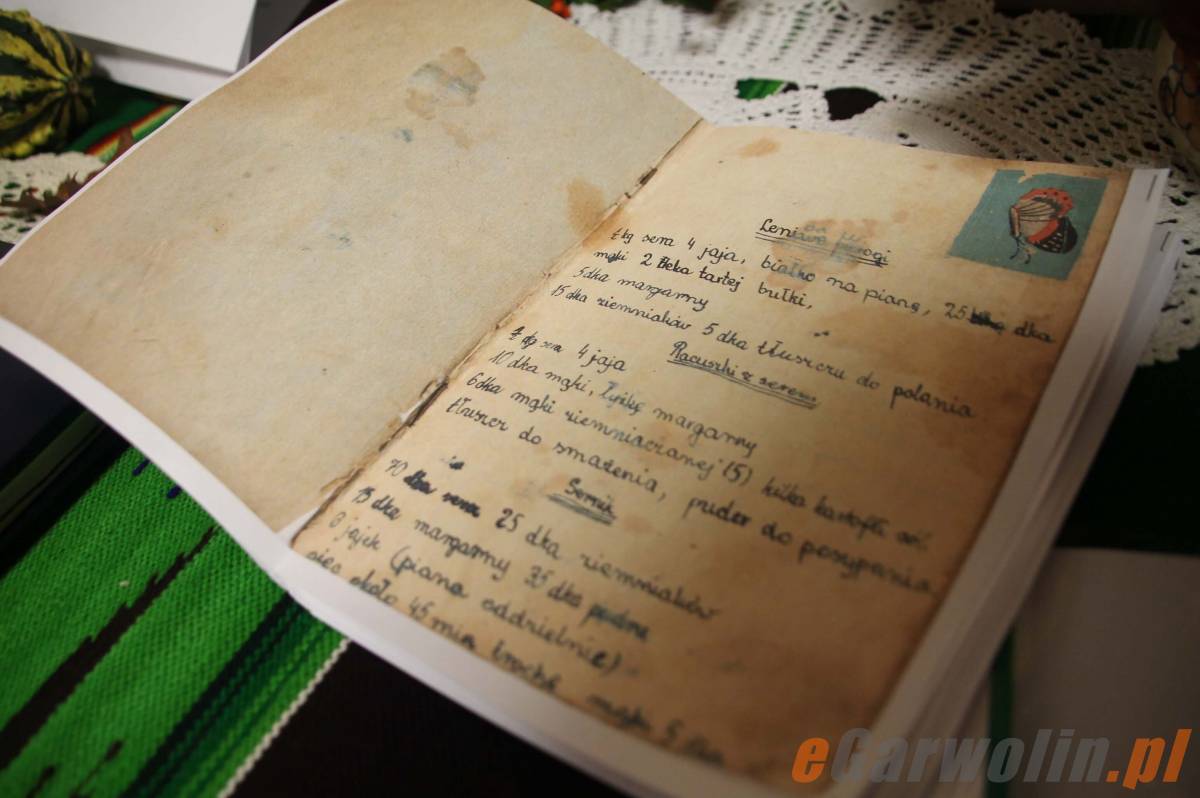 Leniwe pierogi
kg sera 4 jaja, białko na pianę, 25 dka
mąki 2 deka tartej bułki,
5 dka margarny
15 dka ziemniaków 5 dka tłuszczu do polania
Racuszki z serem
sera 4 jaja
10 dka mąki, łyżkę margarny
6 dka mąki ziemniaczanej (5) kilka kartofli sól
tłuszcz do smażenia, puder do posypania
Sernik
70 dka sera 25 dka ziemniaków
15 dka margarny 35 dka pudru
8 jajek (piana oddzielnie)
piec około 45 min trochę mąki 5 dka
eGarwolin.pl